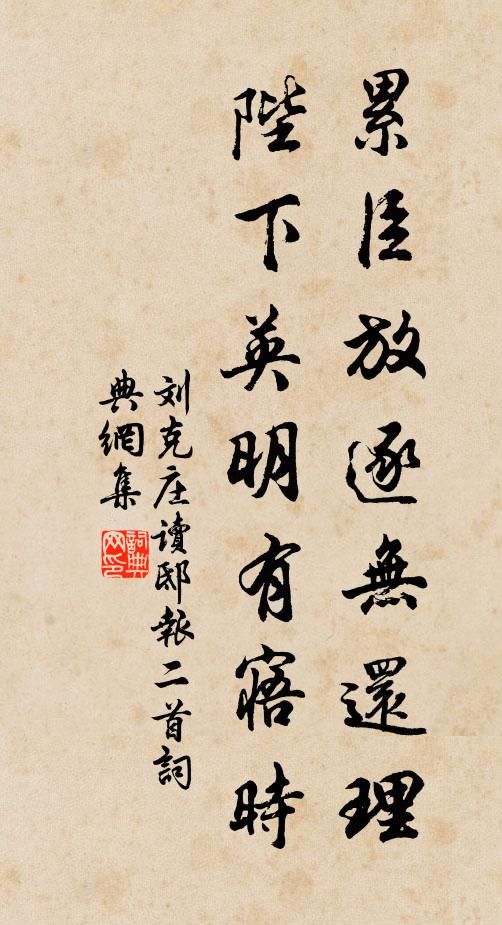 累臣放逐無還理
陛下英明有寤時
刘克庄讀邸報二首詞
典網集
詞典
网印